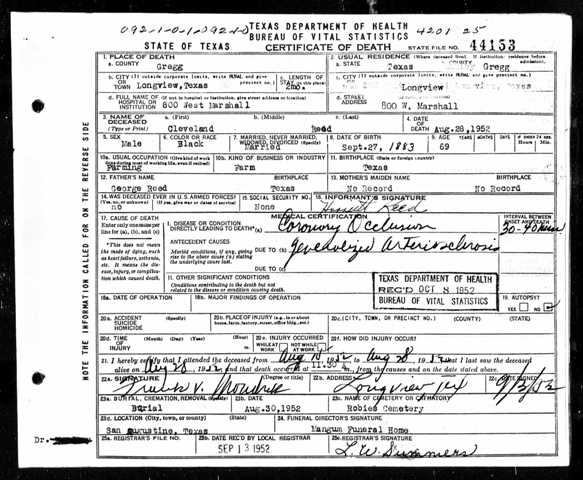 092-1-0-1-092-1-0
TEXAS DEPARTMENT OF HEALTH
BUREAU OF VITAL STATISTICS
4201 25
STATE OF TEXAS CERTIFICATE OF DEATH STATE FILE NO. 44153
1. PLACE OF DEATH 2. USUAL RESIDENCE (Where deceased lived. If institution: residence before admission)
a. COUNTY Gregg a. STATE Texas b. COUNTY Gregg
b. CITY (If outside corporate limits, write RURAL and give precinct no.) Longview, Texas c. LENGTH OF STAY (in this place) 2mo. c. CITY (If outside corporate limits, write RURAL and give precinct no.) Longview Longview, Texas
d. FULL NAME OF (If not in hospital or institution, give street address or location) HOSPITAL OR INSTITUTION 800 West Marshall d. STREET ADDRESS 800 W. Marshall
3. NAME OF DECEASED (Type or Print) a. (First) Cleveland b. (Middle) c. (Last) Reed 4. DATE OF DEATH Aug.28,1952
5. SEX Male 6. COLOR OR RACE Black 7. MARRIED, NEVER MARRIED, WIDOWED, DIVORCED (Specify) Married 8. DATE OF BIRTH Sept.27, 1883 9. AGE YEARS 69 MONTHS DAYS If under 24 hrs. Hours Min.
10a. USUAL OCCUPATION (Give kind of work done during most of working life, even if retired) Farming 10b. KIND OF BUSINESS OR INDUSTRY Farm 11. BIRTHPLACE (State or foreign country) Texas
12. FATHER'S NAME George Reed BIRTHPLACE Texas 13. MOTHER'S MAIDEN NAME No Record BIRTHPLACE No Record
14. WAS DECEASED EVER IN U.S. ARMED FORCES? no 15. SOCIAL SECURITY NO. None 16. INFORMANT'S SIGNATURE Reed
17. CAUSE OF DEATH
Enter only one cause per line for (a), (b), and (c)
MEDICAL CERTIFICATION
I. DISEASE OR CONDITION DIRECTLY LEADING TO DEATH* (a) Coronary Occlusion
INTERVAL BETWEEN ONSET AND DEATH 30-40 min
*This does not mean the mode of dying, such as heart failure, asthenia, etc. It means the disease, injury, or complication which caused death.
ANTECEDENT CAUSES
Morbid conditions, if any, giving rise to the above cause (a) stating the underlying cause last.
DUE TO (b) Generalized Arteriosclerosis
DUE TO (c)
II. OTHER SIGNIFICANT CONDITIONS
Conditions contributing to the death but not related to the disease or condition causing death.
TEXAS DEPARTMENT OF HEALTH
REC'D OCT 8 1952
BUREAU OF VITAL STATISTICS
18a. DATE OF OPERATION 18b. MAJOR FINDINGS OF OPERATION 19. AUTOPSY YES NO
20a. ACCIDENT SUICIDE HOMICIDE (Specify) 20b. PLACE OF INJURY (e.g., in or about home, farm, factory, street, office bldg., etc.) 20c. (CITY, TOWN, OR PRECINCT NO.) (COUNTY) (STATE)
20d. TIME OF INJURY (Month) (Day) (Year) (Hour) 20e. INJURY OCCURRED WHILE AT WORK NOT WHILE AT WORK 20f. HOW DID INJURY OCCUR?
21. I hereby certify that I attended the deceased from Aug 1952 to Aug 28, 1952 that I last saw the deceased
alive on Aug 28, 1952 11:30 from the causes and on the date stated above.
22a. SIGNATURE Frank V. (Degree or title) 22b. ADDRESS Longview Tex 22c. DATE SIGNED
23a. BURIAL, CREMATION, REMOVAL (Specify) Burial 23b. DATE Aug.30,1952 23c. NAME OF CEMETERY OR CREMATORY Robies Cemetery
23d. LOCATION (City, town, or county) (State) San Augustine, Texas 24. FUNERAL DIRECTOR'S SIGNATURE Mangum Funeral Home
25a. REGISTRAR'S FILE NO. 25b. DATE REC'D BY LOCAL REGISTRAR SEP 13 1952 25c. REGISTRAR'S SIGNATURE L.W. Summers
Dr.
NOTE THE INFORMATION CALLED FOR ON THE REVERSE SIDE